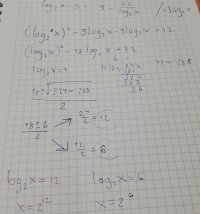 log₂x - 9 = 9 - 72/log₂x /·log₂x
(log₂x)² - 9log₂x - 9log₂x + 72
(log₂x)² - 18 log₂x + 72
log₂x = t
18 ± √324 - 288 / 2
18 ± 6 / 2
24/2 = 12
12/2 = 6
log₂x = 12 log₂x = 6
x = 2¹² x = 2⁶